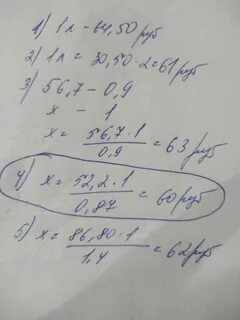 1) 1л - 64,50 руб
2) 1л = 30,50·2 = 61 руб
3) 56,7 - 0,9
x - 1
x = 56,7·1 / 0,9 = 63 руб
4) x = 52,2·1 / 0,87 = 60 руб
5) x = 86,80·1 / 1,4 = 62 руб